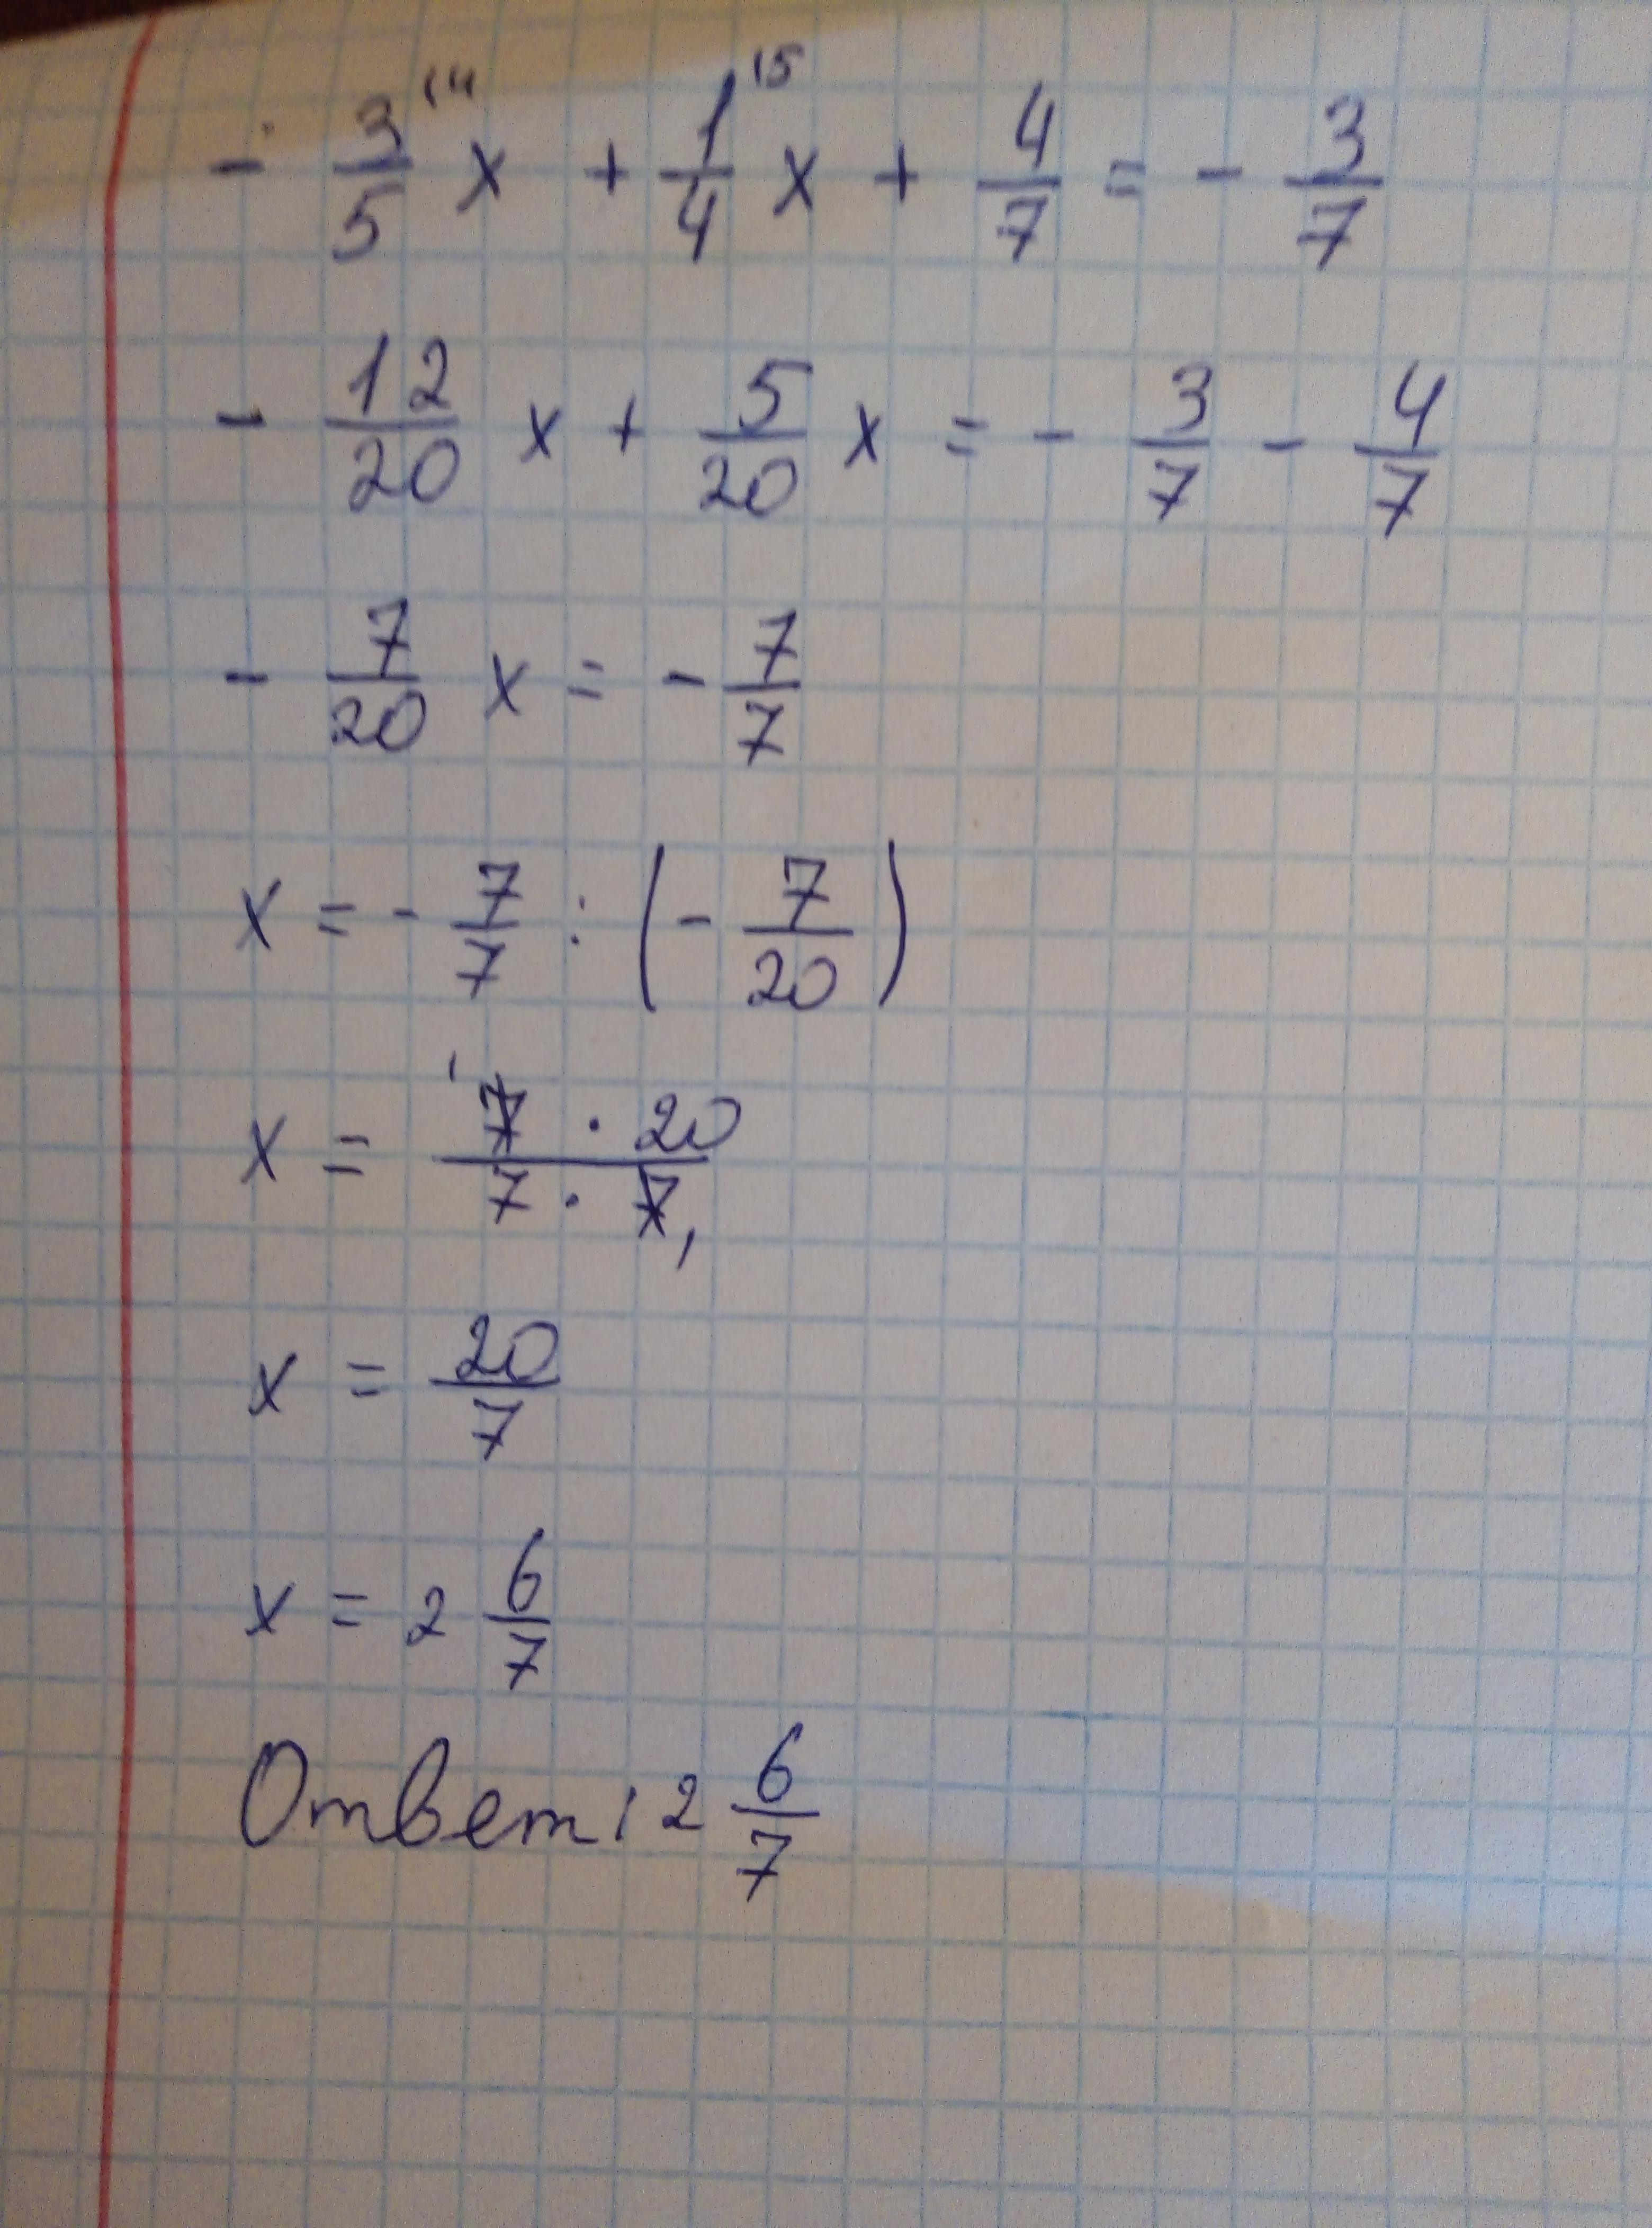 - 3/5 ⁽⁴ x + 1/4 ⁽⁵ x + 4/7 = - 3/7
- 12/20 x + 5/20 x = - 3/7 - 4/7
- 7/20 x = - 7/7
x = - 7/7 : (- 7/20)
x = ¹7 · 20 / 7 · 7₁
x = 20/7
x = 2 6/7
Ответ: 2 6/7